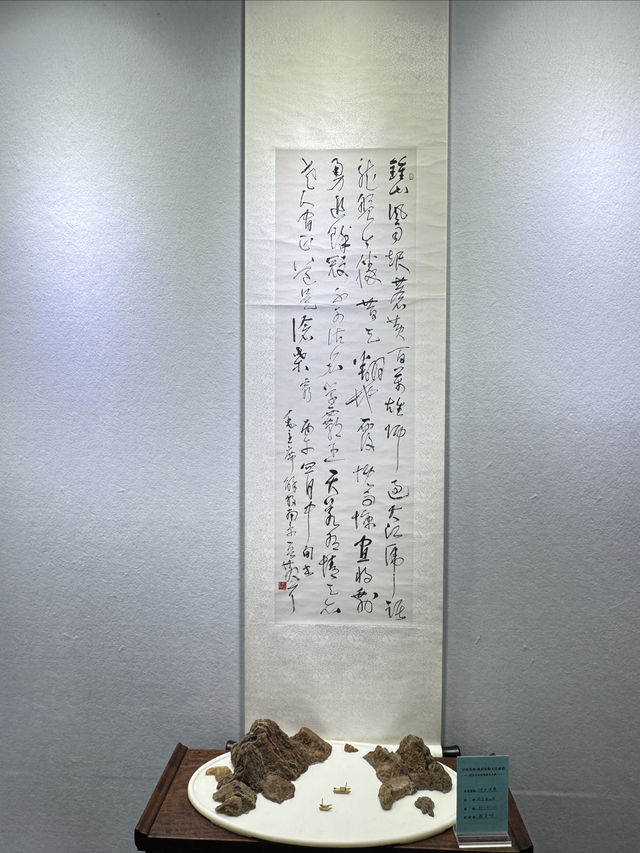 鍾山風雨起蒼黄百萬雄师過大江虎踞
龍盤今勝昔天翻地覆慨而慷宜将剩
勇追窮寇不可沽名學霸王天若有情天亦
老人間正道是滄桑
丙午四月中旬書
毛主席解放南京